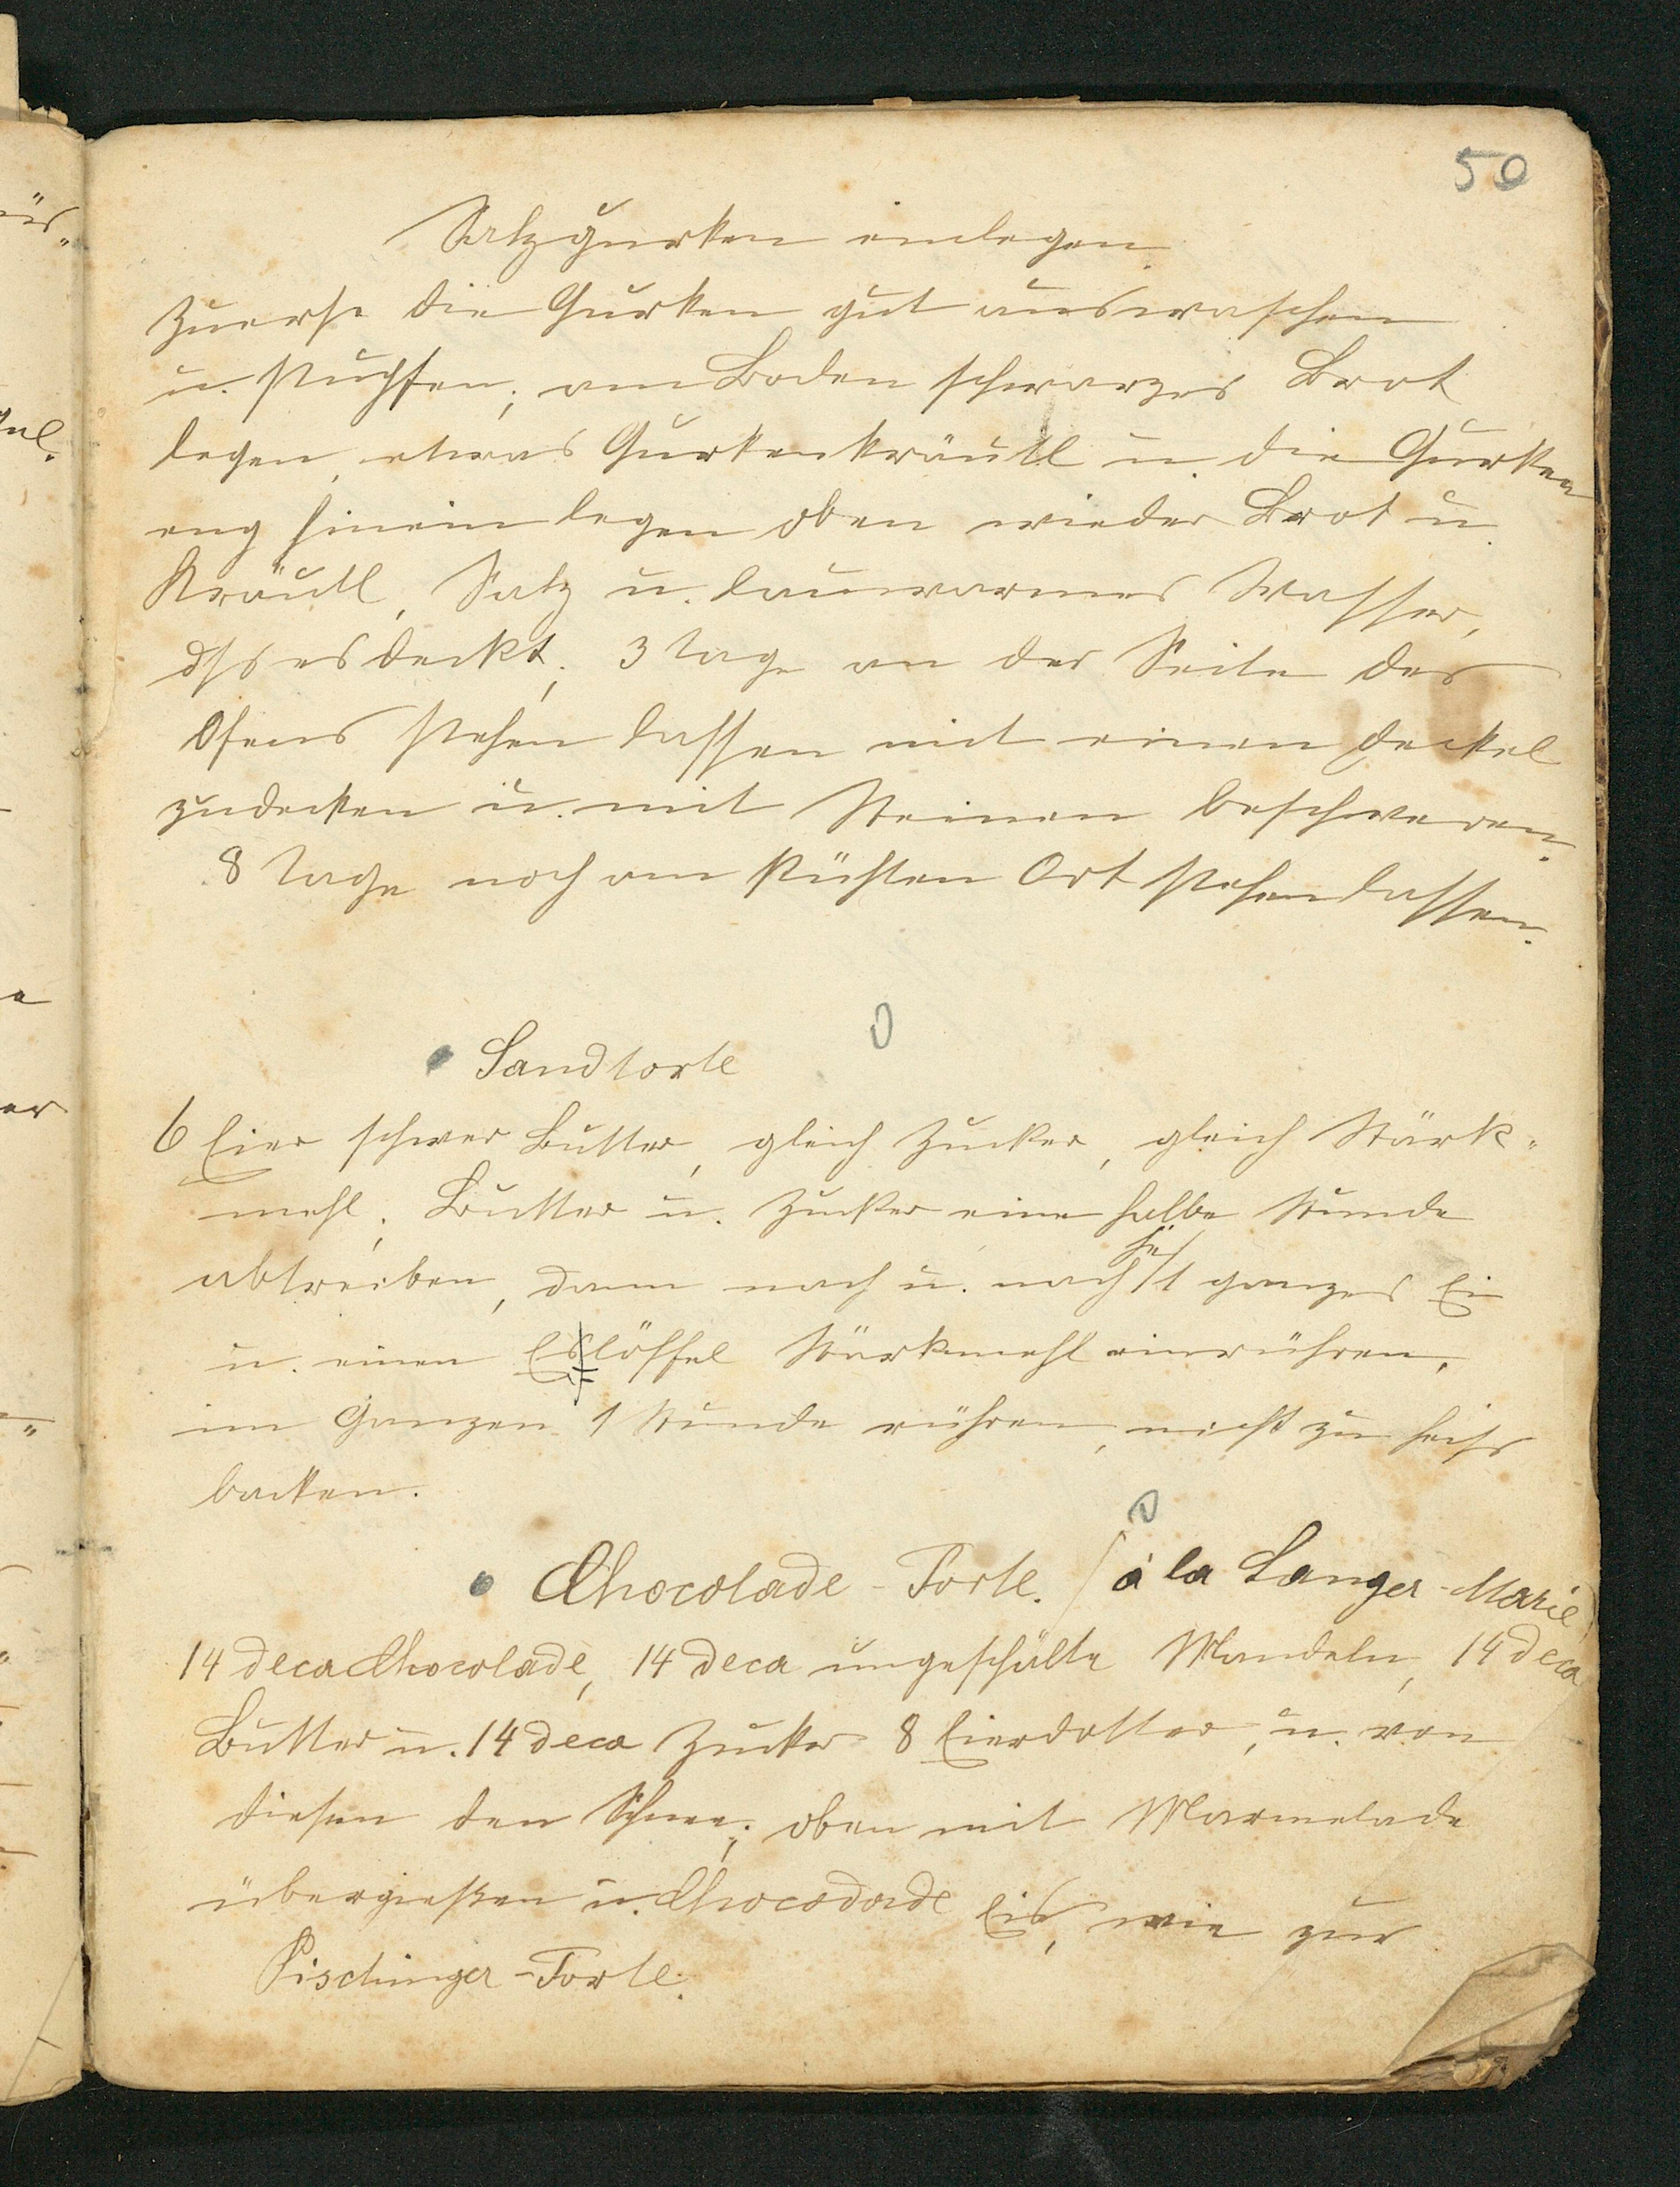 50
Salzgurken einlegen
Zuerst die Gurken gut auswaschen
u. stupfen; am Boden schwarzes Brot
legen, etwas Gurkenkräutl u. die Gurken
eng hineinlegen oben wieder Brot u.
Kräutl, Salz u. lauwarmes Wasser,
dss es deckt; 3 Tage an der Seite des
Ofens stehen lassen mit einen Deckel
zudecken u. mit Steinen beschweren.
8 Tage noch am kühlen Ort stehen lassen.
Sandtorte
6 Eier schwer Butter, gleich Zucker, gleich Stärk-
mehl; Butter u. Zucker eine halbe Stunde
abtreiben, dann nach u. nach 1 ganzes Ei
u. einen Eslöffel Stärkmehl einrühren,
im Ganzen 1 Stunde rühren, nicht zu heiss
backen.
Chocolade-Torte. (à la Langer-Marie)
14 deca Chocolade, 14 deca ungeschälte Mandeln, 14 deca
Butter u. 14 deca Zucker 8 Eierdotter, u. von
diesen den Schnee; oben mit Marmelade
übergießen u. Chocodade Eis, wie zur
Pischinger-Torte.